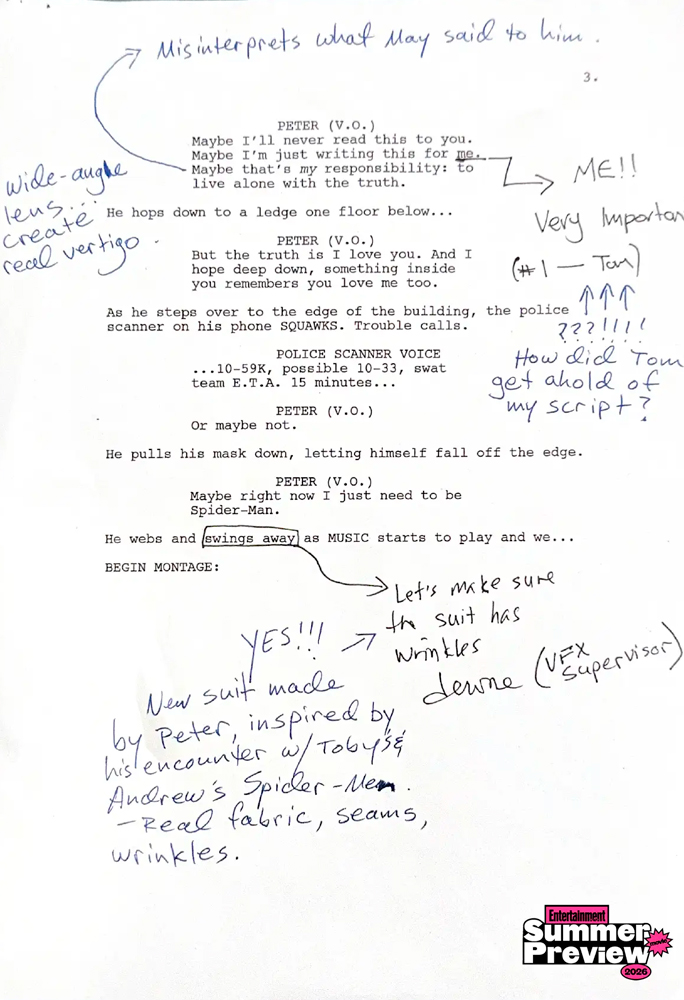 Misinterprets what May said to him.
3.
PETER (V.O.)
Maybe I'll never read this to you.
Maybe I'm just writing this for me.
Maybe that's my responsibility: to
live alone with the truth.
ME!!
Very Importan
(#1 — Tom)
wide-angle
lens...
create
real vertigo.
He hops down to a ledge one floor below...
PETER (V.O.)
But the truth is I love you. And I
hope deep down, something inside
you remembers you love me too.
As he steps over to the edge of the building, the police
scanner on his phone SQUAWKS. Trouble calls.
???!!!!
How did Tom
get ahold of
my script?
POLICE SCANNER VOICE
...10-59K, possible 10-33, swat
team E.T.A. 15 minutes...
PETER (V.O.)
Or maybe not.
He pulls his mask down, letting himself fall off the edge.
PETER (V.O.)
Maybe right now I just need to be
Spider-Man.
He webs and swings away as MUSIC starts to play and we...
BEGIN MONTAGE:
Let's make sure
the suit has
wrinkles
(VFX
supervisor)
YES!!!
New suit made
by Peter, inspired by
his encounter w/ Toby's &
Andrew's Spider-Men.
- Real fabric, seams,
wrinkles.
Entertainment
Summer
movie
Preview
2026